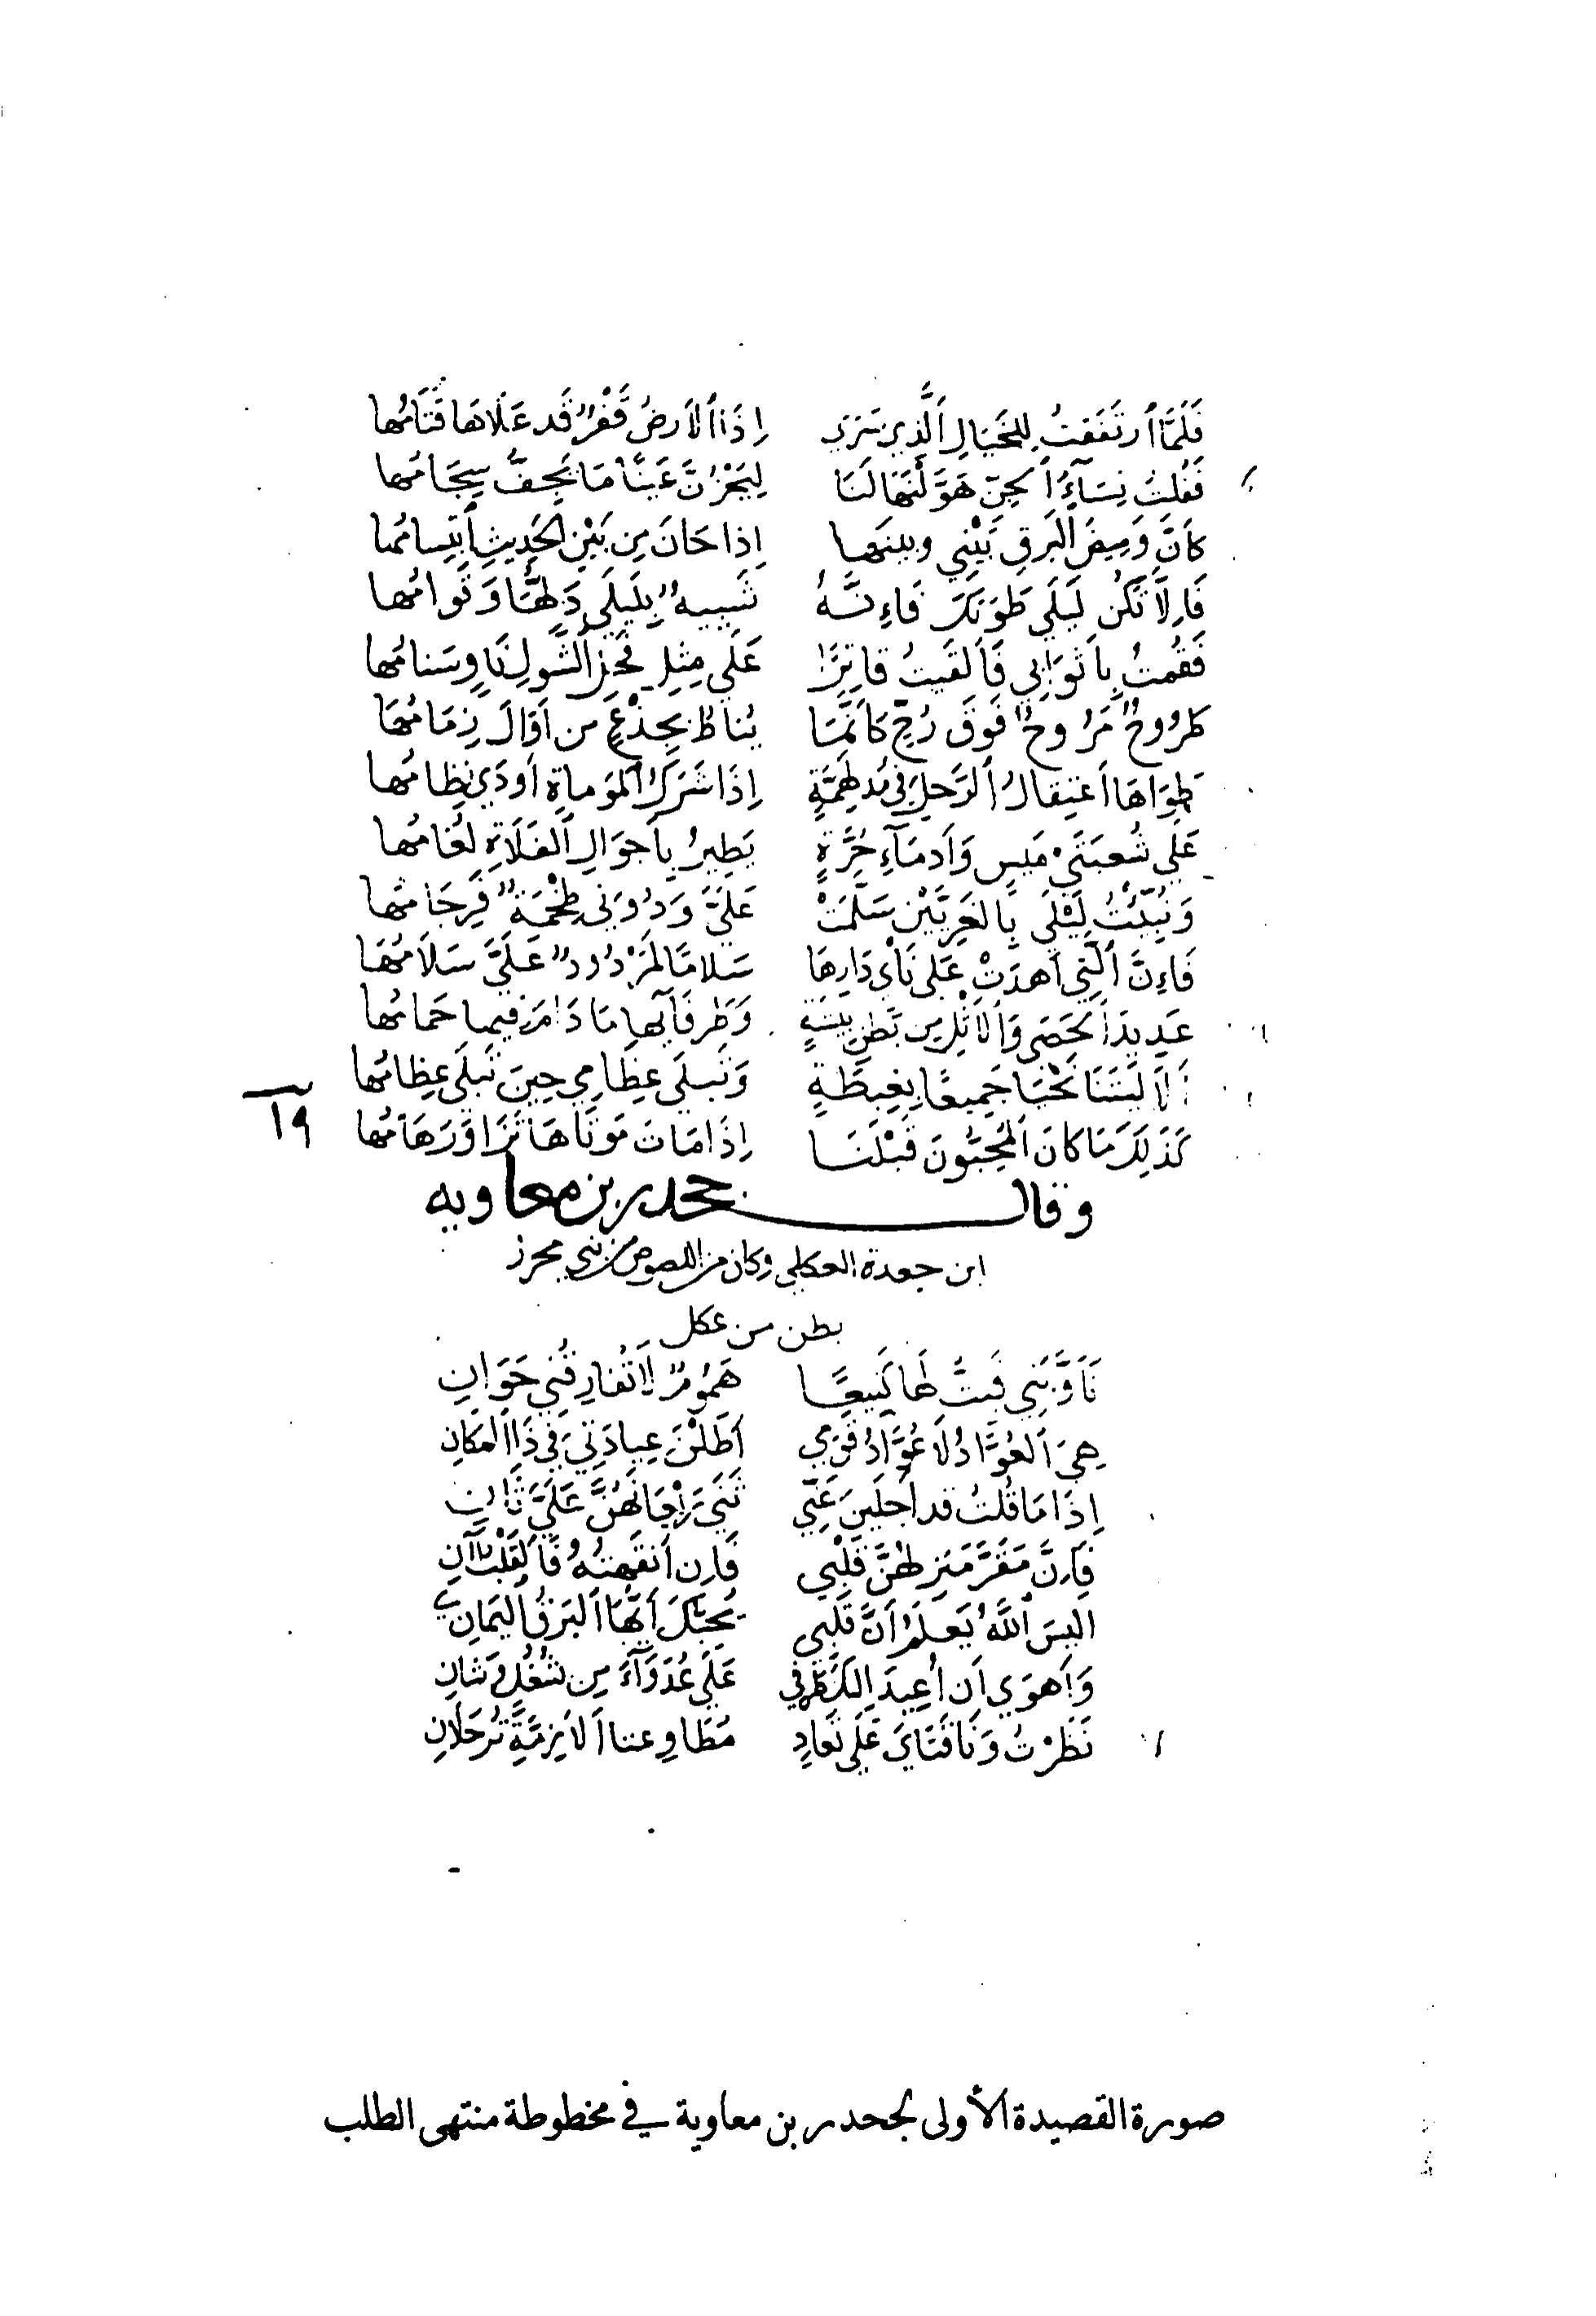 فَلَمَّا ٱرتَفَقتُ لِلخَيَالِ ٱلَّذِي سَرَى إِذَا ٱلأَرضُ قَفْرٌ قَد عَلَاهَا قَتَامُها
فَقُلتُ نِسَآءُ ٱلجِنِّ هَوَّلْنَهَا لَنَا لِيَحْزُنَّ عَينًا مَا يَجِفُّ سِجَامُها
كَأَنَّ وَمِيضَ ٱلبَرقِ بَيْنِي وبينَها إِذا حَانَ مِن بَيْنِ الحَدِيثِ ٱبتِسامُها
فَإِلَّا تَكُن لَيلَى طَوَتكَ فَإِنَّهُ شَبِيهٌ بِلَيلَى دَلُّهَا وَقَوامُها
فَقُمتُ بِأَثوَابِي فَأَلقَيتُ قاتِرًا عَلَى مِثلِ الشَّولِ نَاوٍ وسَنامُها
طَرُوحٌ مَرُوحٌ فَوقَ رُحٍّ كَأَنَّمَا يُناطُ بِجِذْعٍ من أَوَالَ زِمَامُهَا
طَوَاهَا ٱعتِقالُ ٱلرَّحلِ في مُدلَهِمَّةٍ إِذَا شَرَكُ ٱلمَوماةِ أَودَى نِظامُها
عَلَى شُعبَتَيْ مَيسٍ وَأَدمَآءِ حُرَّةٍ يَطِيرُ بِأَجوَالِ ٱلفَلَاةِ لُغَامُها
وَنُبِّئْتُ لَيْلَى بِالغَرِيَّيْنِ سَلَّمَتْ عَلَيَّ وَدُونِي طِخْمَةٌ فَرِجَامُها
فَإِنَّ ٱلَّتِي أَهدَتْ عَلَى نَأْيِ دَارِهَا سَلامًا لَمَرْدُودٌ عَلَيَّ سَلَامُهَا
عَدِيدَ ٱلحَصَى وَٱلأَثْلِ مِن بَطنِ بِيشَةٍ وَطَرفَآئِها مَا دَامَ فِيها حَمامُها
أَلَا لَيتَنَا نَحْيَا جَمِيعًا بِغِبطَةٍ وَتَبلَى عِظَامِي حِينَ تَبلَى عِظامُها
كَذَلِكَ مَا كَانَ ٱلمُحِبُّونَ قَبْلَنَا إِذَا مَاتَ مَوتَاهَا تَزَاوَرَ هَامُها
١٩
وقال جحدر بن معاويه
ابن جعدة العكلي وكان من اللصوص من بني محرز
بطن من عكل
تَأَوَّبَنِي فَبِتُّ لَها كَنِيعًا هُمُومٌ لَا تُفَارِقُنِي حَوَانِ
هِيَ ٱلعُوَّادُ لَا عُوَّادُ قَومِي أَطَلْنَ عِيادَتِي في ذَا ٱلمَكَانِ
إِذَا مَا قُلتُ قد أَجلَينَ عَنِّي ثَنَى رَيْعَانَهُنَّ عَلَيَّ ثَانِ
فَإِنَّ مَقَرَّ مَنزِلِهُنَّ قَلْبِي فَإِن أَنفَهنَهُ فَٱلقَلْبُ آنِ
أَلَيسَ ٱللَّهُ يَعلَمُ أَنَّ قَلبِي يُحِبُّكَ أَيُّها ٱلبَرقُ اليَمانِي
وَأَهوَى أَن أُعِيدَ إِلَيكَ طَرفي عَلَى عُدَوَآءَ مِن شُغُلٍ وَشَانِ
نَظَرْتُ وَنَاقَتَايَ عَلَى تَعَادٍ مُطَاوِعتا ٱلأَزِمَّةِ تُرحَلَانِ
صورة القصيدة الأولى لجحدر بن معاوية في مخطوطة منتهى الطلب